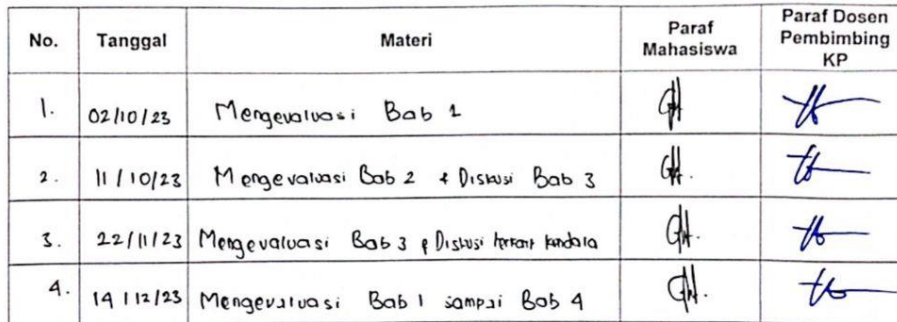 No. Tanggal Materi Paraf Mahasiswa Paraf Dosen Pembimbing KP
1. 02/10/23 Mengevaluasi Bab 1
2. 11/10/23 Mengevaluasi Bab 2 & Diskusi Bab 3
3. 22/11/23 Mengevaluasi Bab 3 & Diskusi terkait kendala
4. 14/12/23 Mengevaluasi Bab 1 sampai Bab 4